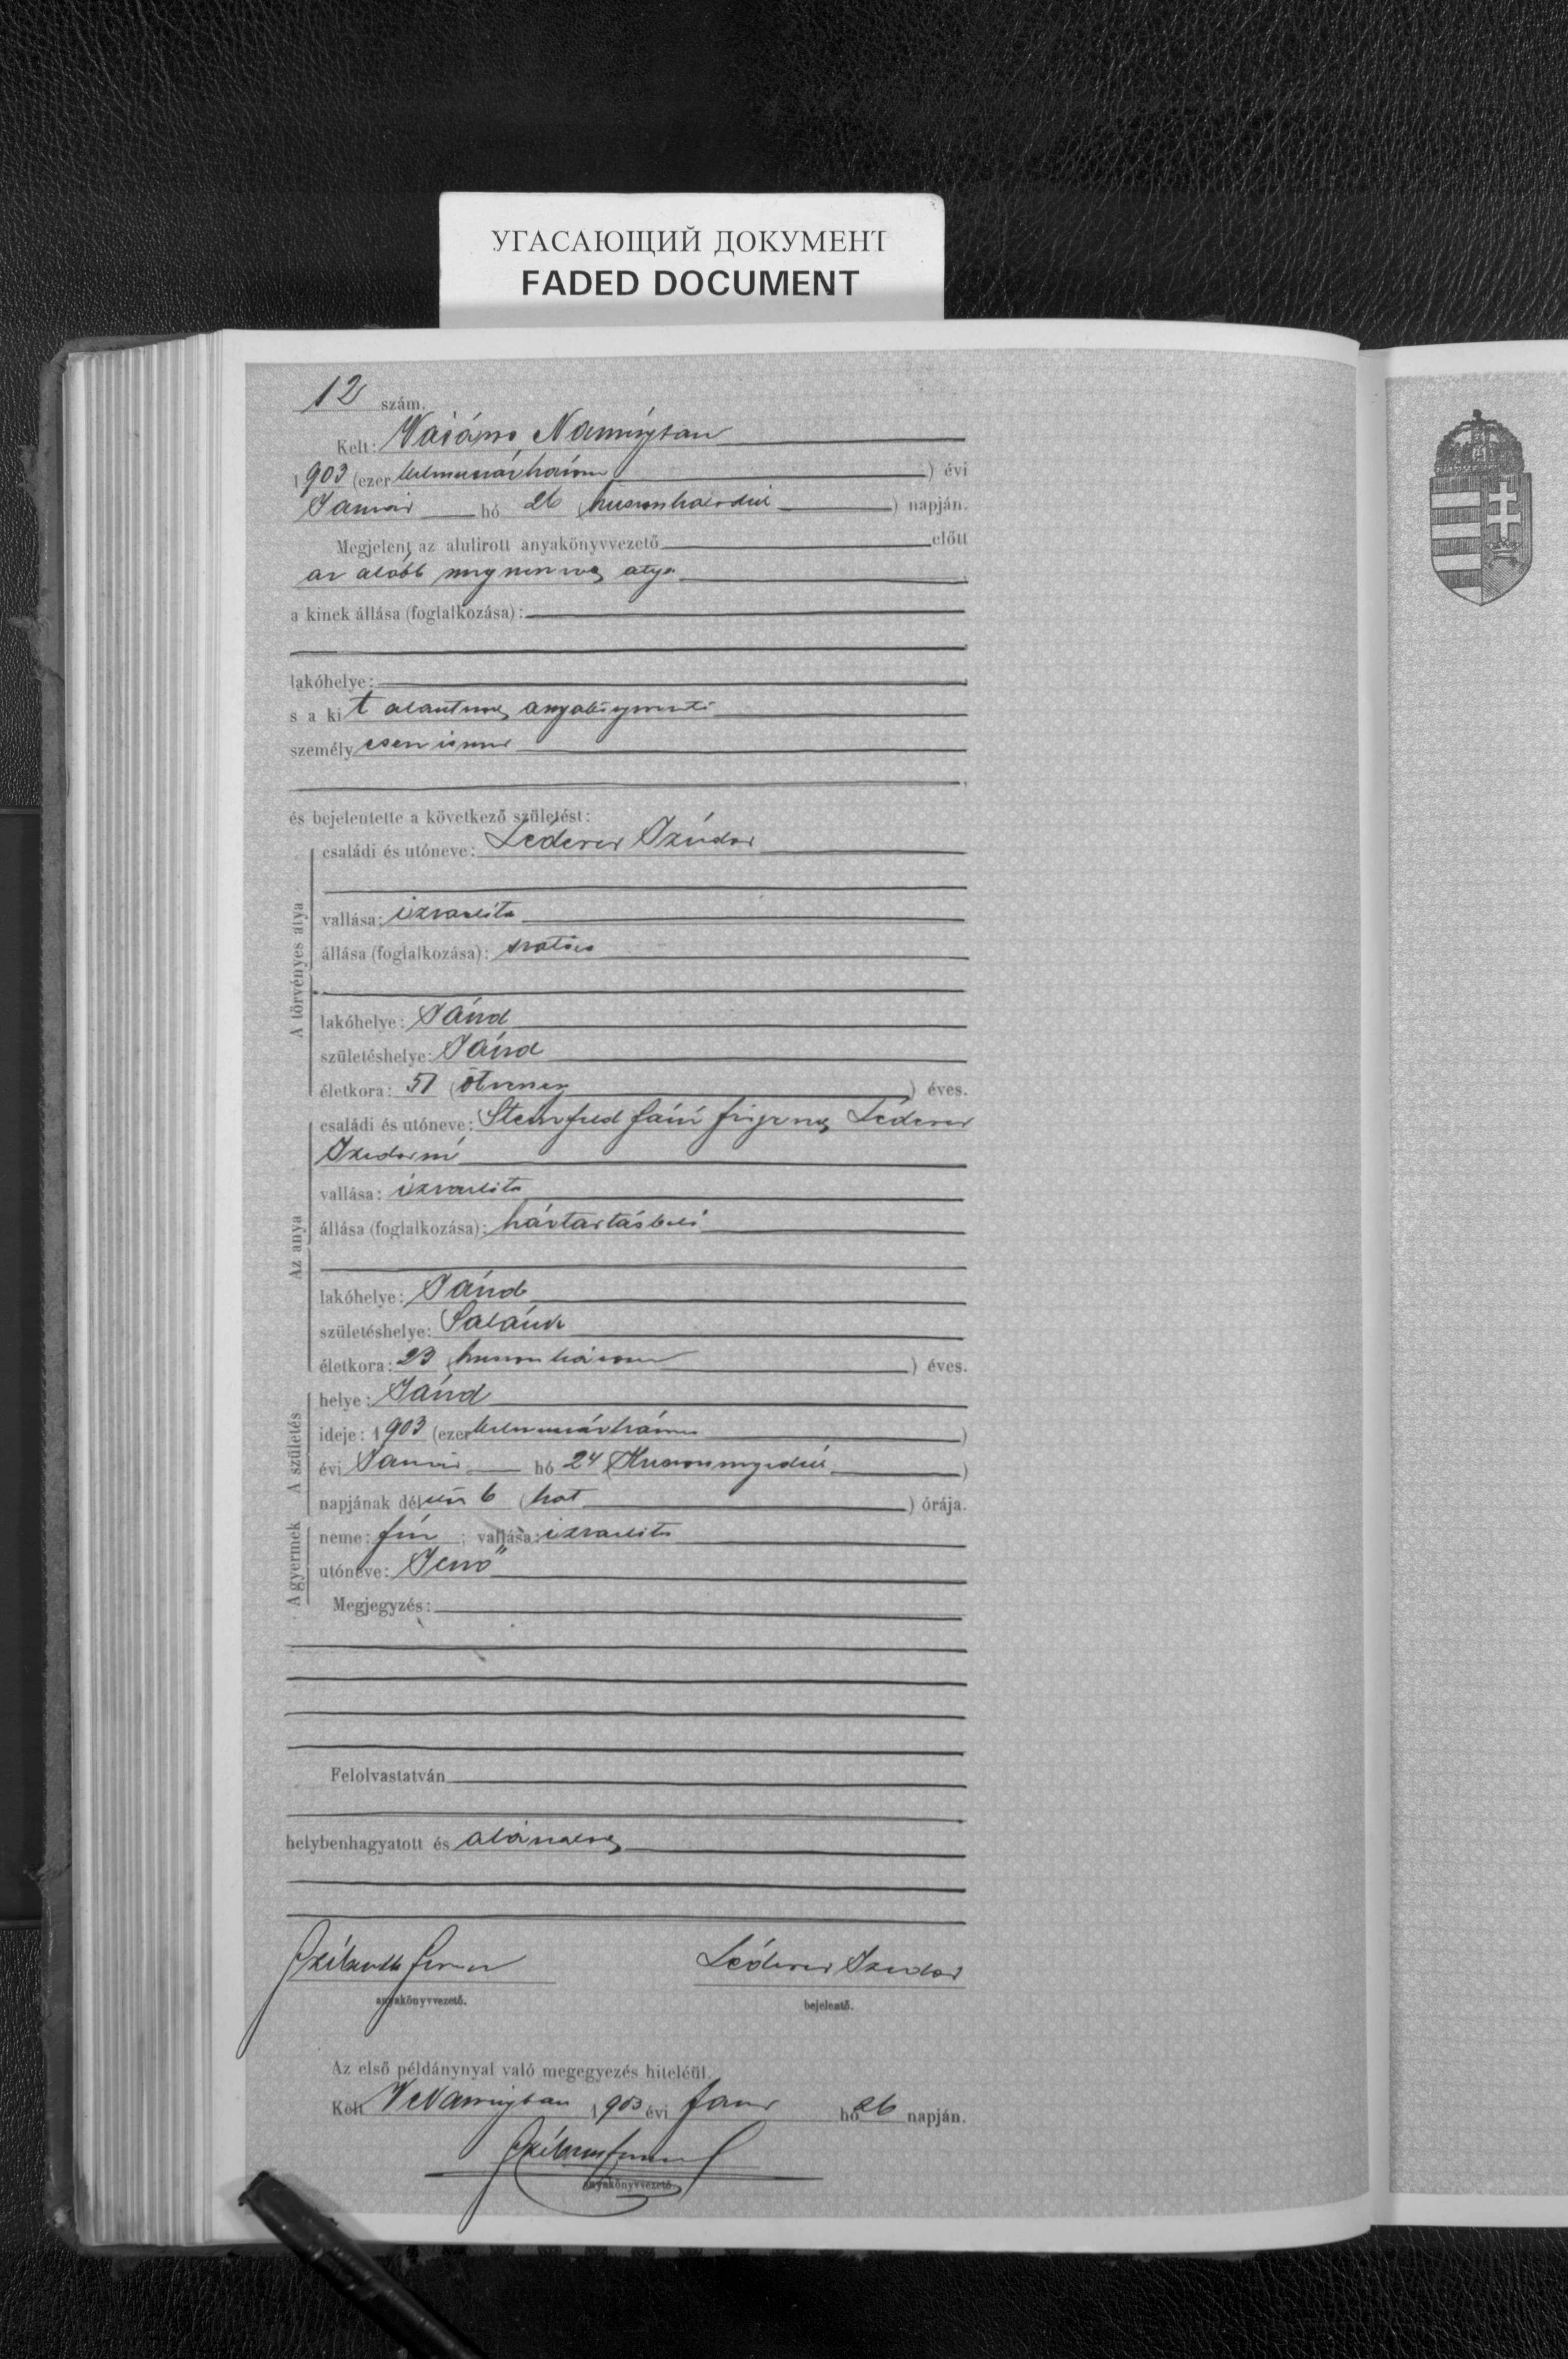 УГАСАЮЩИЙ ДОКУМЕНТ
FADED DOCUMENT
12 szám.
Kelt: Naményban
1903 (ezer kilenczszázhárom) évi
Január hó 26 (huszonhatodik) napján.
Megjelent az alulirott anyakönyvvezető előtt
az alább megnevezett atya
a kinek állása (foglalkozása):
lakóhelye:
s a kit alantirott anyakönyvvezető
személyesen ismer
és bejelentette a következő születést:
A törvényes atya
családi és utóneve: Léderer Izidor
vallása: izraelita
állása (foglalkozása): szatócs
lakóhelye: Jánd
születéshelye: Jánd
életkora: 51 (ötvenegy) éves.
Az anya
családi és utóneve: Sternfeld Fáni férjezett Léderer
Izidorné
vallása: izraelita
állása (foglalkozása): háztartásbeli
lakóhelye: Jánd
születéshelye: Salánk
életkora: 23 (huszonhárom) éves.
A születés
helye: Jánd
ideje: 1903 (ezer kilenczszázhárom)
évi Január hó 24 (Huszonnegyedik)
napjának délután 6 (hat) órája.
A gyermek
neme: fiú; vallása: izraelita
utóneve: Jenő
Megjegyzés:
Felolvastatván
helybenhagyatott és aláiratott
Léderer Izidor
anyakönyvvezető.
bejelentő.
Az első példánynyal való megegyezés hiteléül.
Kelt VNaményban 1903 évi Janr hó 26 napján.
anyakönyvvezető.